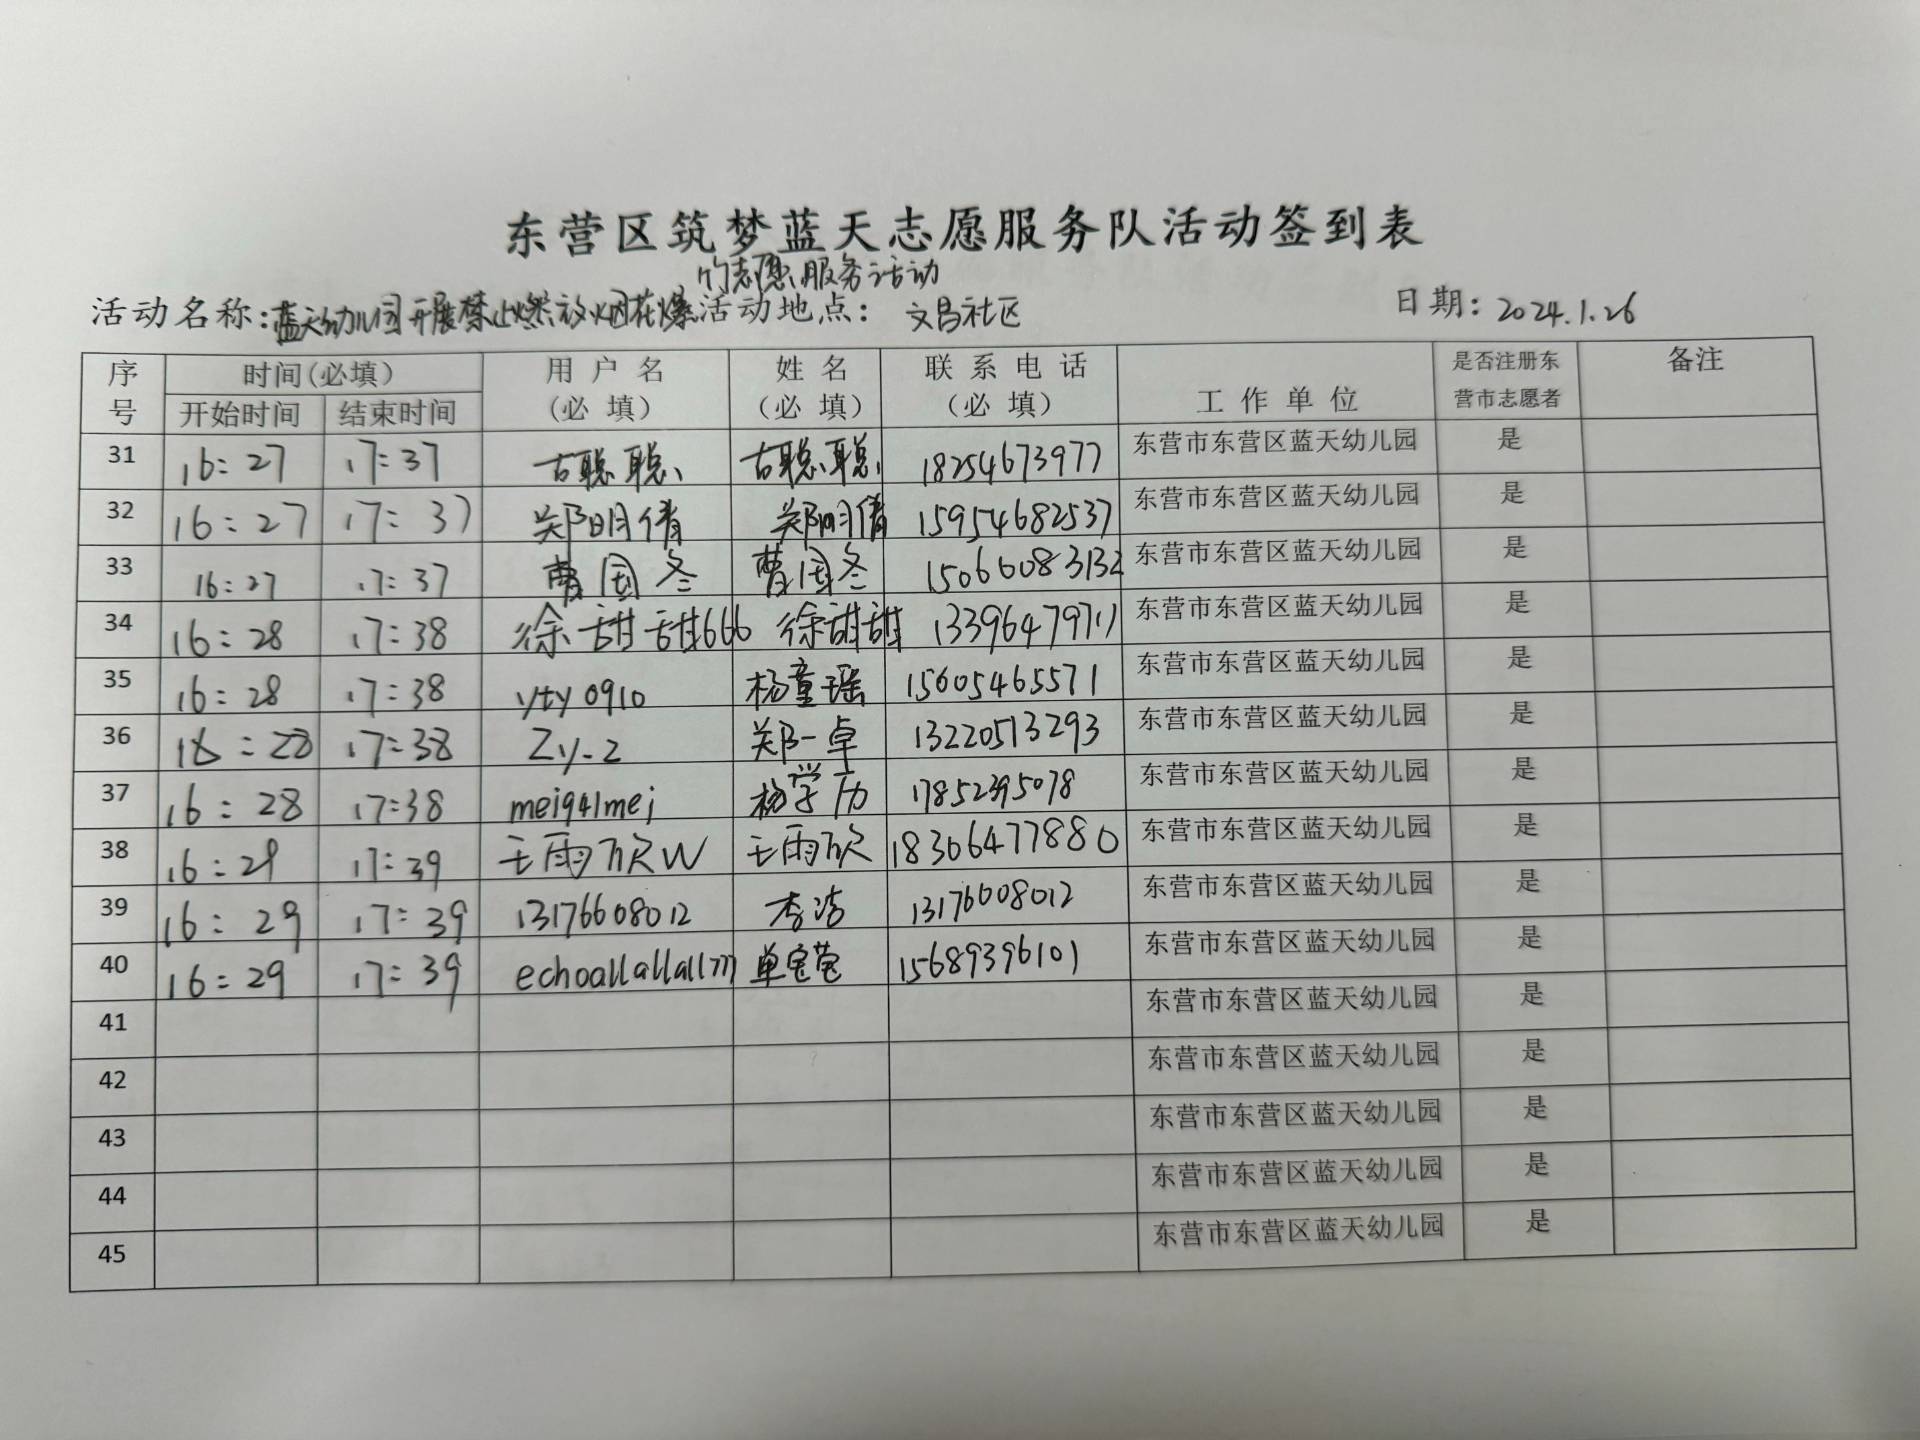 东营区筑梦蓝天志愿服务队活动签到表
的志愿服务活动
活动名称:蓝天幼儿园开展禁止燃放烟花爆 活动地点: 文昌社区 日期: 2024.1.26
序号 时间(必填) 用户名(必填) 姓名(必填) 联系电话(必填) 工作单位 是否注册东营市志愿者 备注
开始时间 结束时间
31 16:27 17:37 古聪聪 古聪聪 18254673977 东营市东营区蓝天幼儿园 是
32 16:27 17:37 郑明倩 郑明倩 15954682537 东营市东营区蓝天幼儿园 是
33 16:27 17:37 曹国冬 曹国冬 15066083132 东营市东营区蓝天幼儿园 是
34 16:28 17:38 徐甜甜666 徐甜甜 13396479711 东营市东营区蓝天幼儿园 是
35 16:28 17:38 yty0910 杨童瑶 15605465571 东营市东营区蓝天幼儿园 是
36 16:28 17:38 Zy-2 郑一卓 13220513293 东营市东营区蓝天幼儿园 是
37 16:28 17:38 mei941mei 杨学 17852395078 东营市东营区蓝天幼儿园 是
38 16:29 17:39 王雨欣W 王雨欣 18306477880 东营市东营区蓝天幼儿园 是
39 16:29 17:39 13176608012 李洁 13176608012 东营市东营区蓝天幼儿园 是
40 16:29 17:39 echoallallall777 单宝莹 15689396101 东营市东营区蓝天幼儿园 是
41 东营市东营区蓝天幼儿园 是
42 东营市东营区蓝天幼儿园 是
43 东营市东营区蓝天幼儿园 是
44 东营市东营区蓝天幼儿园 是
45 东营市东营区蓝天幼儿园 是